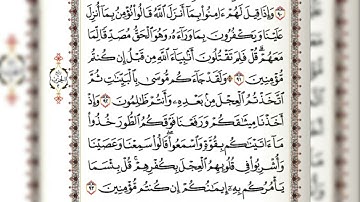 وَإِذَا قِيلَ لَهُمْ ءَامِنُوا۟ بِمَآ أَنزَلَ ٱللَّهُ قَالُوا۟ نُؤْمِنُ بِمَآ أُنزِلَ
عَلَيْنَا وَيَكْفُرُونَ بِمَا وَرَآءَهُۥ وَهُوَ ٱلْحَقُّ مُصَدِّقًا لِّمَا
مَعَهُمْ ۗ قُلْ فَلِمَ تَقْتُلُونَ أَنۢبِيَآءَ ٱللَّهِ مِن قَبْلُ إِن كُنتُم
مُّؤْمِنِينَ ٩١ وَلَقَدْ جَآءَكُم مُّوسَىٰ بِٱلْبَيِّنَٰتِ ثُمَّ
ٱتَّخَذْتُمُ ٱلْعِجْلَ مِنۢ بَعْدِهِۦ وَأَنتُمْ ظَٰلِمُونَ ٩٢ وَإِذْ
أَخَذْنَا مِيثَٰقَكُمْ وَرَفَعْنَا فَوْقَكُمُ ٱلطُّورَ خُذُوا۟
مَآ ءَاتَيْنَٰكُم بِقُوَّةٍ وَٱسْمَعُوا۟ ۖ قَالُوا۟ سَمِعْنَا وَعَصَيْنَا
وَأُشْرِبُوا۟ فِى قُلُوبِهِمُ ٱلْعِجْلَ بِكُفْرِهِمْ ۚ قُلْ بِئْسَمَا
يَأْمُرُكُم بِهِۦٓ إِيمَٰنُكُمْ إِن كُنتُم مُّؤْمِنِينَ ٩٣